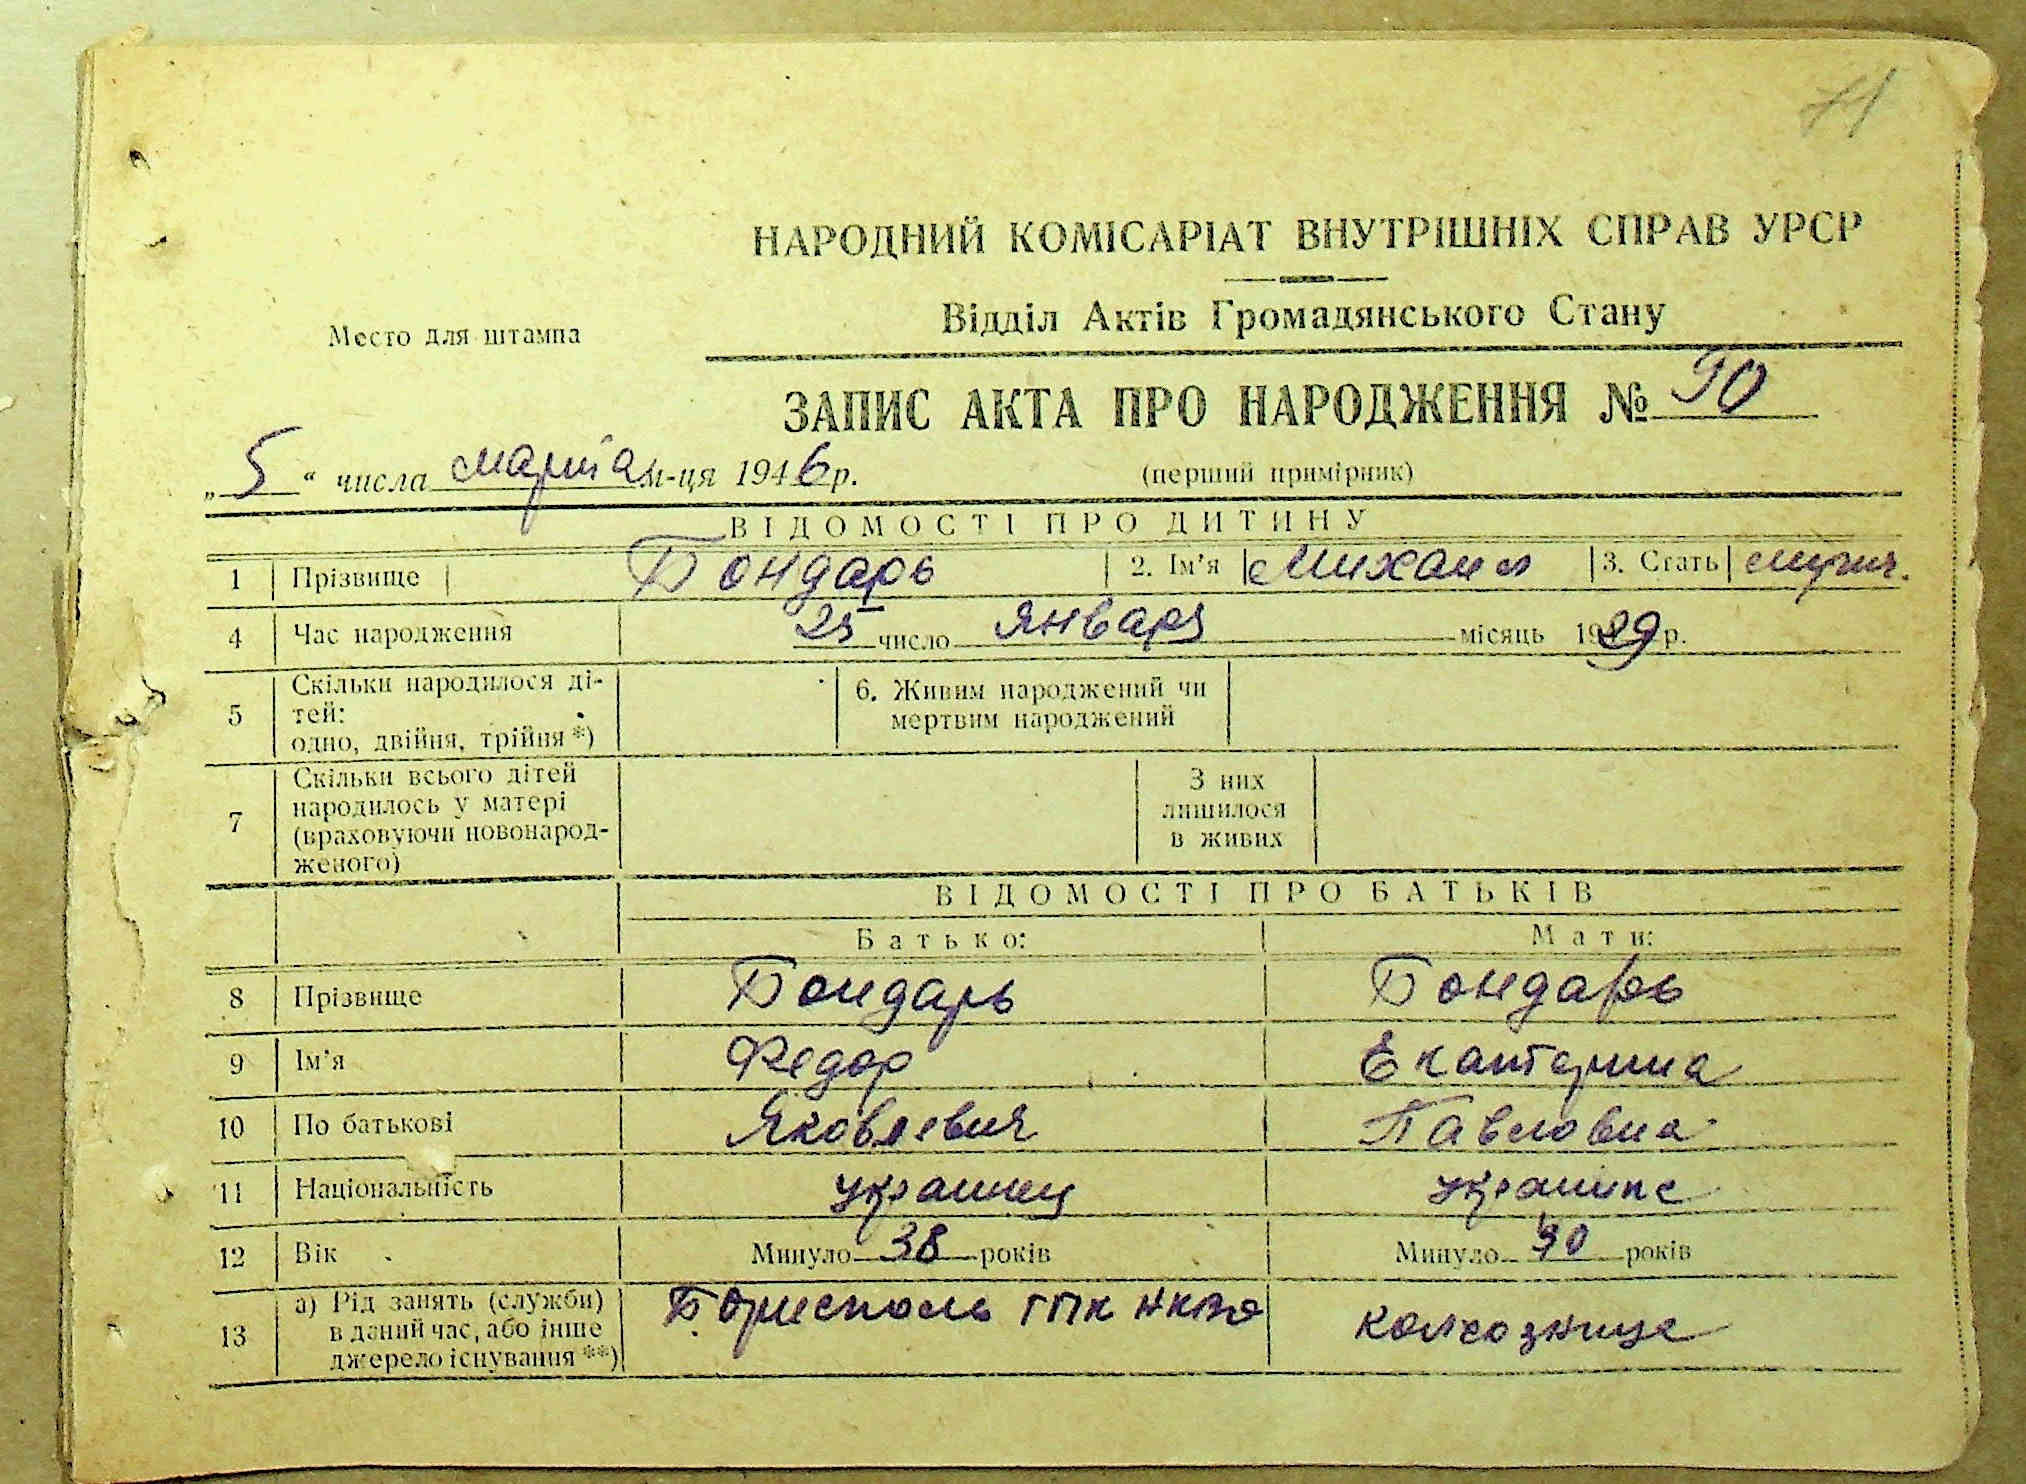 71
НАРОДНИЙ КОМІСАРІАТ ВНУТРІШНІХ СПРАВ УРСР
Відділ Актів Громадянського Стану
Место для штампа
ЗАПИС АКТА ПРО НАРОДЖЕННЯ № 70
„5“ числа марта м-ця 1946 р. (перший примірник)
ВІДОМОСТІ ПРО ДИТИНУ
1 Прізвище Бондарь 2. Ім'я Михаил 3. Стать мужч.
4 Час народження 25 число Января місяць 1929 р.
5 Скільки народилося ді-
тей:
одно, двійня, трійня *)
6. Живим народжений чи
мертвим народжений
7 Скільки всього дітей
народилось у матері
(враховуючи новонарод-
женого)
З них
лишилося
в живих
ВІДОМОСТІ ПРО БАТЬКІВ
Батько: Мати:
8 Прізвище Бондарь Бондарь
9 Ім'я Федор Екатерина
10 По батькові Яковлевич Павловна
11 Національність украинец украинка
12 Вік Минуло 38 років Минуло років
13 а) Рід занять (служби)
в даний час, або інше
джерело існування **)
Борисполь колхозница